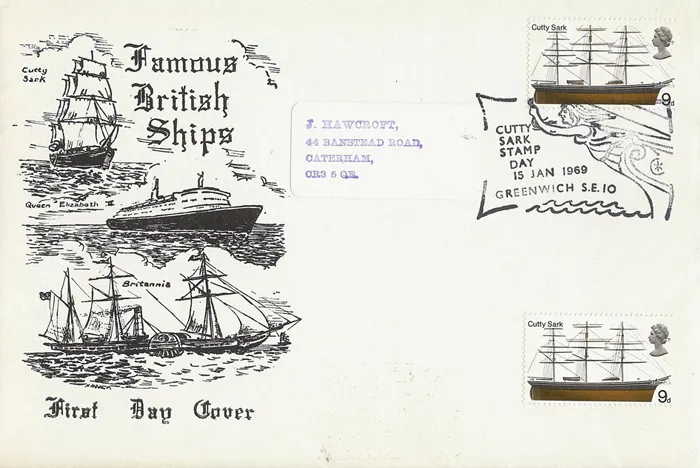 Famous
British
Ships
Cutty
Sark
Queen Elizabeth II
Britannia
First Day Cover
J. HAWCROFT,
44 BANSTEAD ROAD,
CATERHAM,
CR3 5 QE.
Cutty Sark
9d
CUTTY
SARK
STAMP
DAY
15 JAN 1969
GREENWICH S.E.10
Cutty Sark
9d